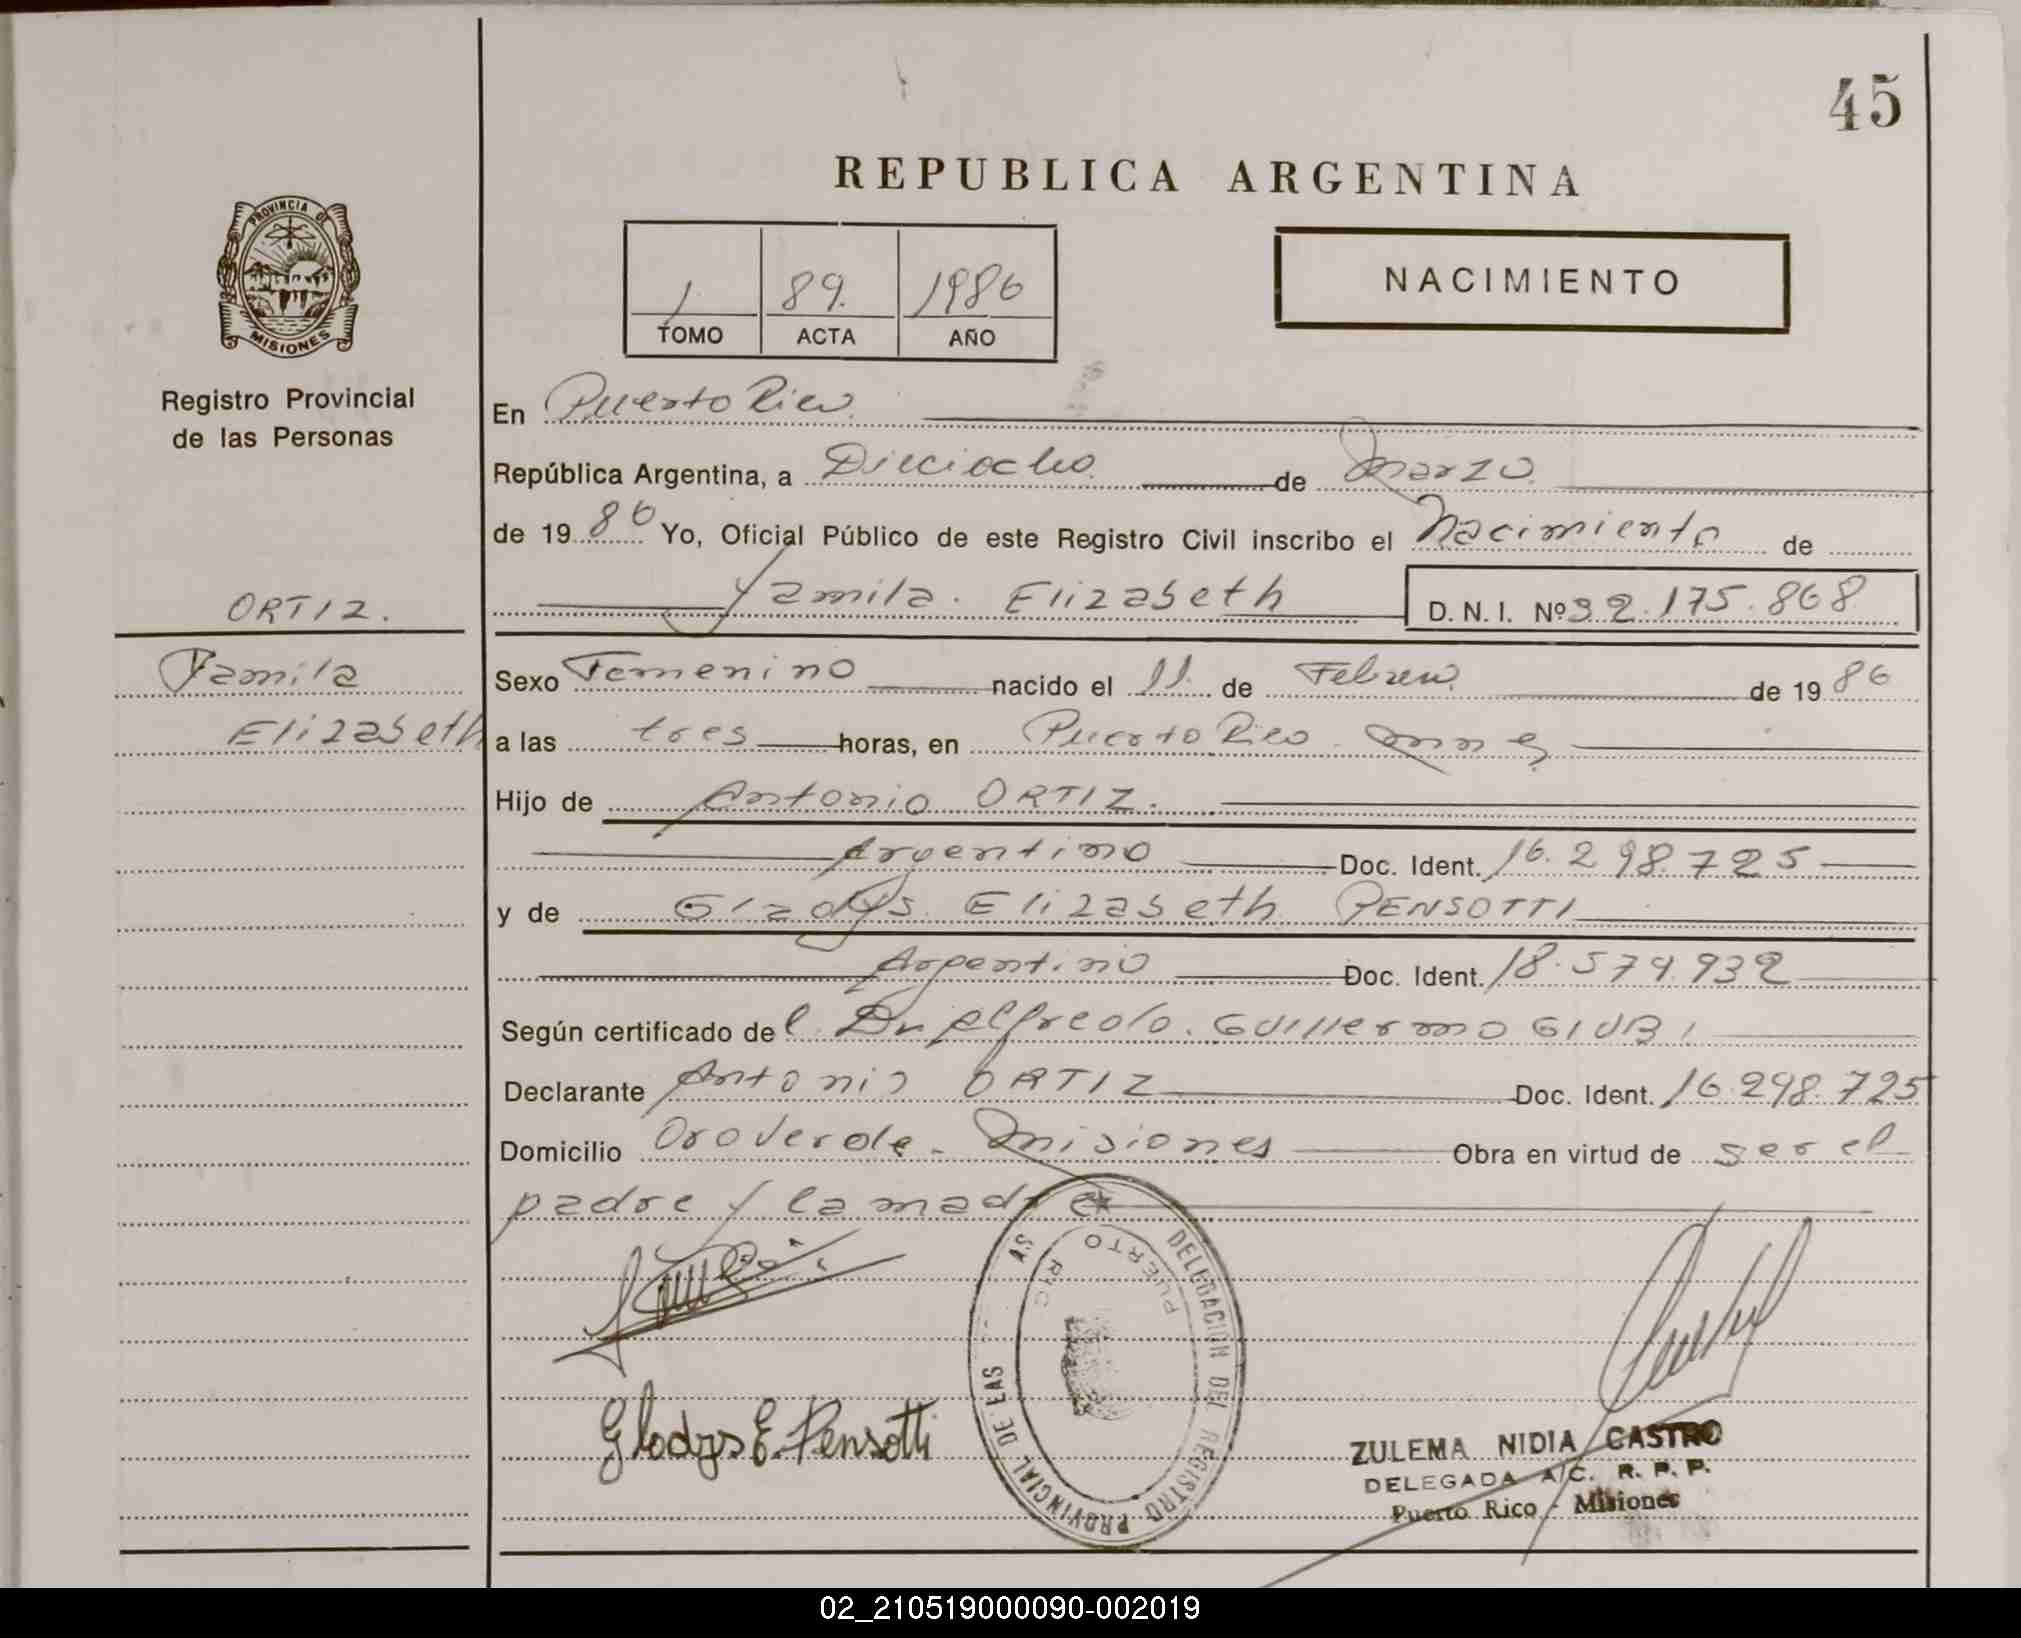 45
REPUBLICA ARGENTINA
PROVINCIA DE
MISIONES
Registro Provincial
de las Personas
ORTIZ.
Yamila
Elizabeth
1 89. 1986
TOMO ACTA AÑO
NACIMIENTO
En Puerto Rico.
República Argentina, a Dieciocho de Marzo.
de 19 86 Yo, Oficial Público de este Registro Civil inscribo el Nacimiento de
Yamila. Elizabeth D. N. I. Nº 32.175.868
Sexo Femenino nacido el 11. de Febrero de 19 86
a las tres horas, en Puerto Rico. Mnes
Hijo de Antonio ORTIZ.
Argentino Doc. Ident. 16.298.725
y de Gladys Elizabeth PENSOTTI
Argentino Doc. Ident. 18.574.932
Según certificado del Dr. Alfredo. Guillermo GIUBI
Declarante Antonio ORTIZ Doc. Ident. 16.298.725
Domicilio Oro Verde - Misiones Obra en virtud de ser el
padre y la madre
DELEGACION DEL REGISTRO PROVINCIAL DE LAS
PUERTO RIC
Gladys E. Pensotti
ZULEMA NIDIA CASTRO
DELEGADA A/C. R. P. P.
Puerto Rico - Misiones
02_210519000090-002019